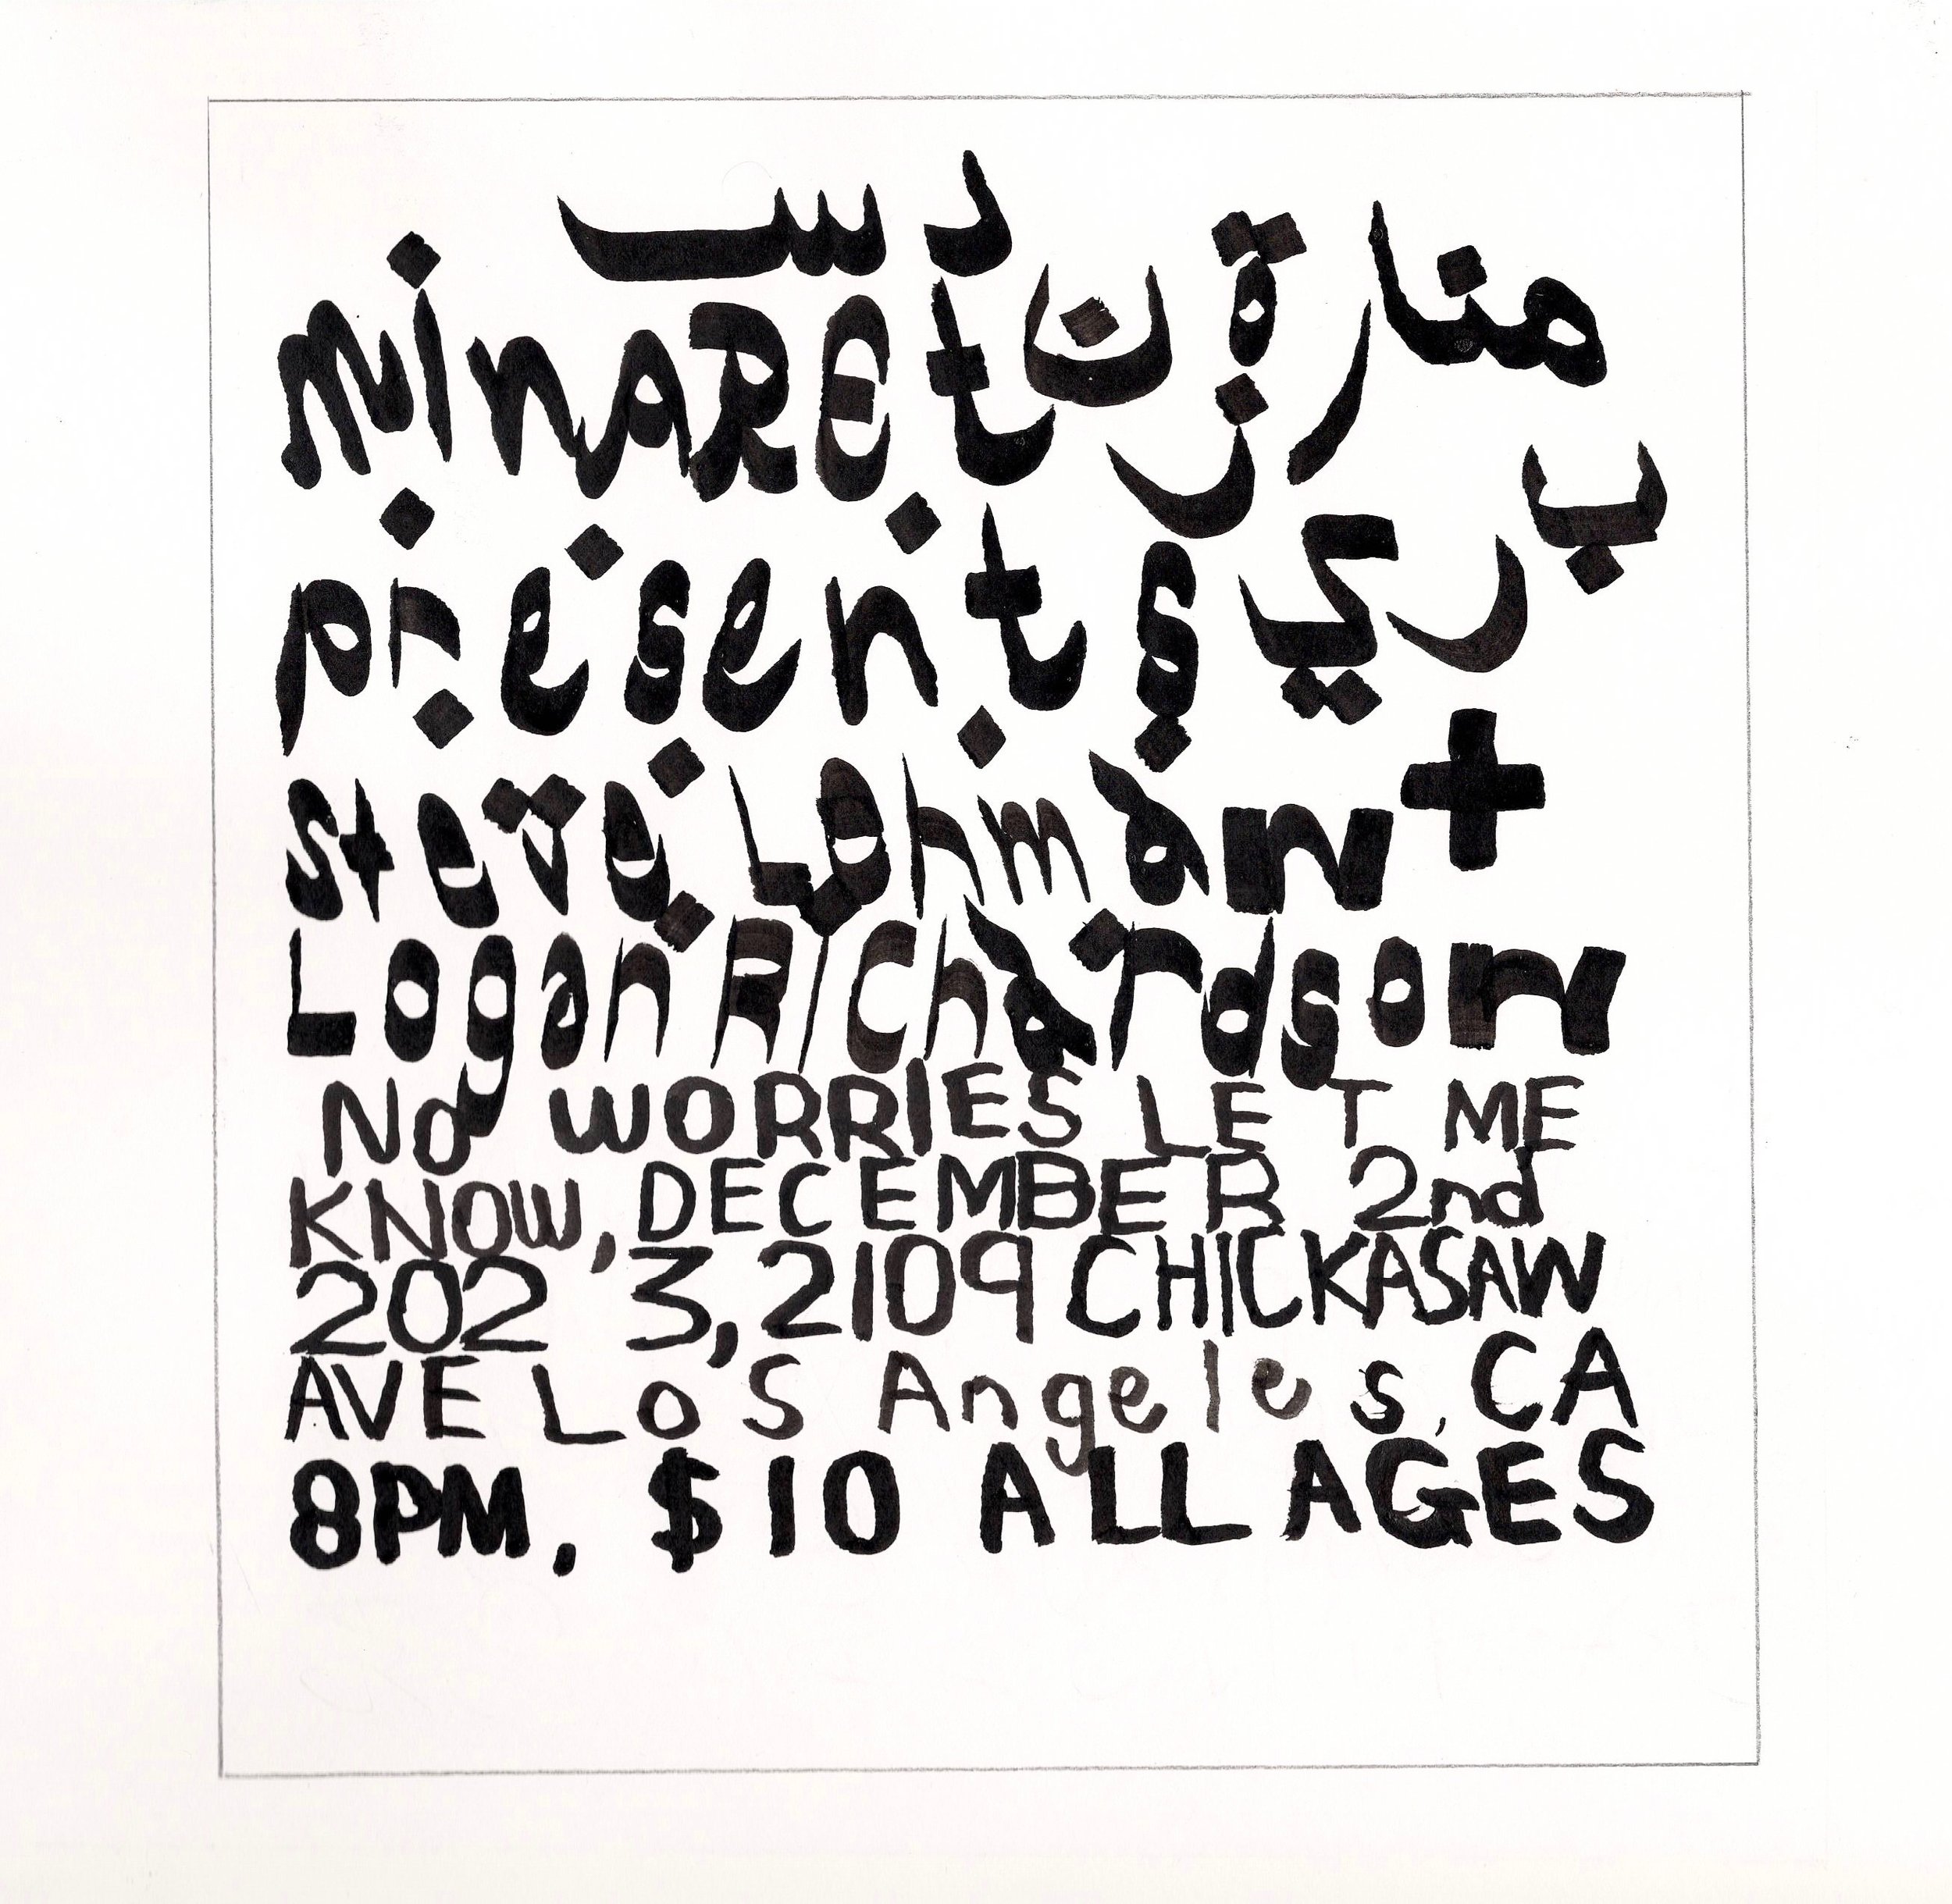 منارة
بريزن د س
MINARET
presents
steve Lehman +
Logan Richardson
NO WORRIES LET ME
KNOW, DECEMBER 2nd
2023, 2109 CHICKASAW
AVE LoS Angeles, CA
8PM, $10 ALL AGES